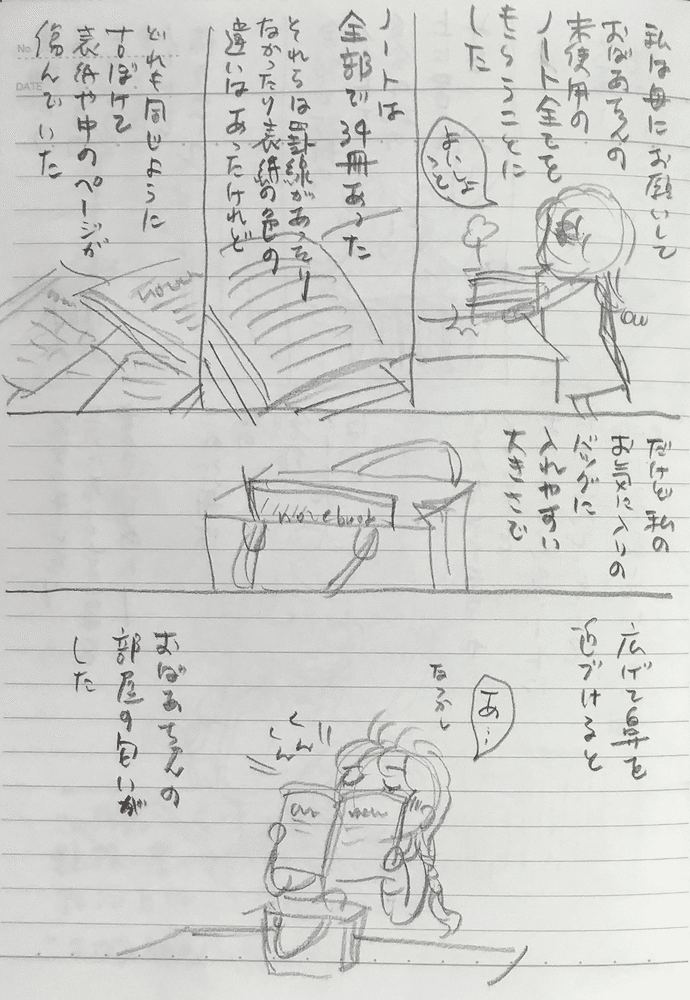 私は母にお願いして
おばあちゃんの
未使用の
ノート全てを
もらうことに
した
よいしょ
っと
ノートは
全部で34冊あった
それらは罫線があったり
なかったり表紙の色の
違いはあったけれど
どれも同じように
古ぼけて
表紙や中のページが
傷んでいた
No.
DATE
だけど私の
お気に入りの
バッグに
入れやすい
大きさで
notebook
広げて鼻を
近づけると
あ…
なつかし
くん
くん
おばあちゃんの
部屋の匂いが
した